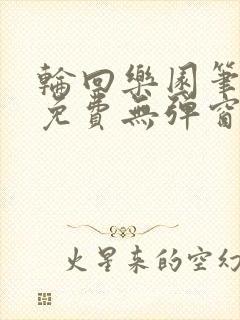 輪回樂園筆
免費無彈窗
火星來的空幻